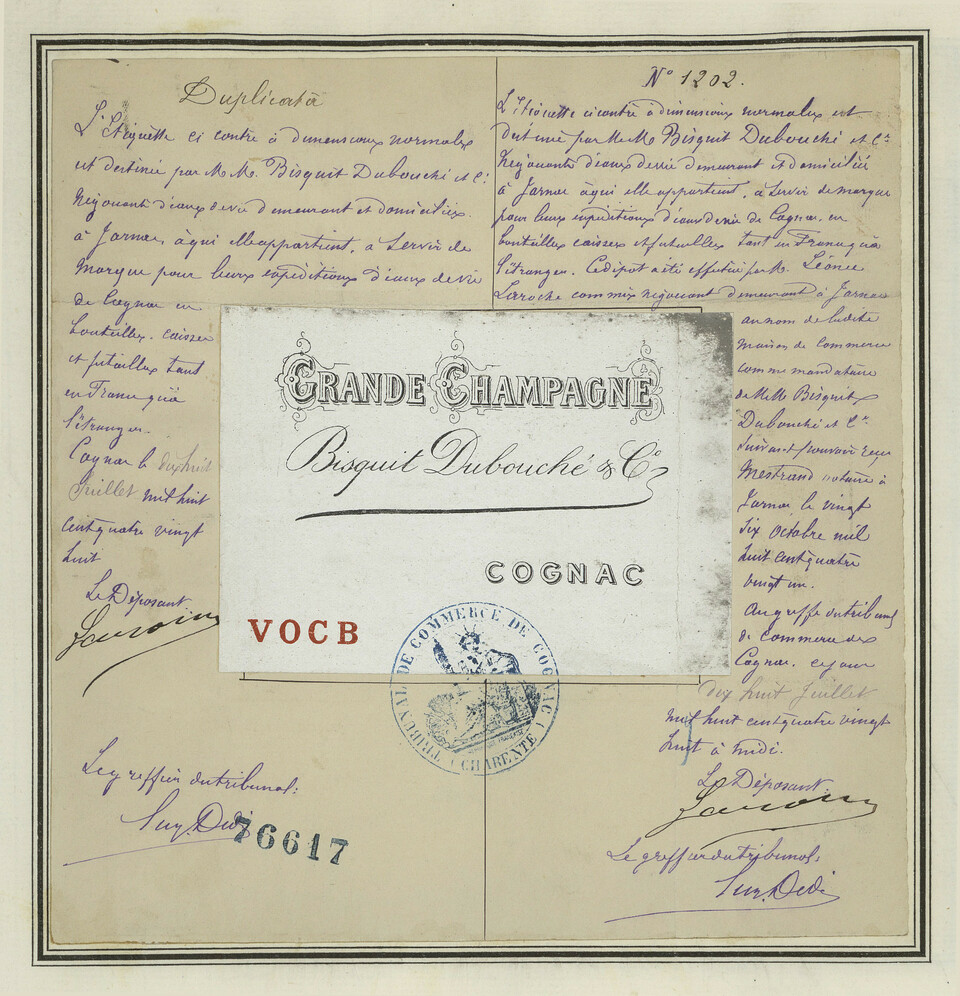 Duplicata
L'Etiquette ci contre à dimensions normales
est destinée par MM. Bisquit Dubouché et Cie
Négociants d'eaux de vie demeurant et domiciliés
à Jarnac à qui elle appartient, à servir de
marque pour leurs expéditions d'eaux de vie
de Cognac en
bouteilles, caisses
et futailles tant
en France qu'à
l'étranger.
Cognac le dix huit
Juillet mil huit
cent quatre vingt
huit
Le Déposant
Le greffier du tribunal:
76617
N° 1202.
L'Etiquette ci contre à dimensions normales est
destinée par MM Bisquit Dubouché et Cie
Négociants d'eaux de vie demeurant et domiciliés
à Jarnac à qui elle appartient, à servir de marque
pour leurs expéditions d'eaux de vie de Cognac en
bouteilles caisses et futailles tant en France qu'à
l'étranger. Ce dépôt a été effectué par M. Léonce
Laroche commis négociant demeurant à Jarnac
au nom de ladite
maison de commerce
comme mandataire
de MM Bisquit
Dubouché et Cie
suivant pouvoir reçu
Mestraud notaire à
Jarnac le vingt
six octobre mil
huit cent quatre
vingt un.
Au greffe du tribunal
de commerce de
Cognac, ce jour
dix huit Juillet
mil huit cent quatre vingt
huit à midi.
Le Déposant
Le greffier du tribunal:
GRANDE CHAMPAGNE
Bisquit Dubouché & Co
COGNAC
VOCB
TRIBUNAL DE COMMERCE DE COGNAC (CHARENTE)